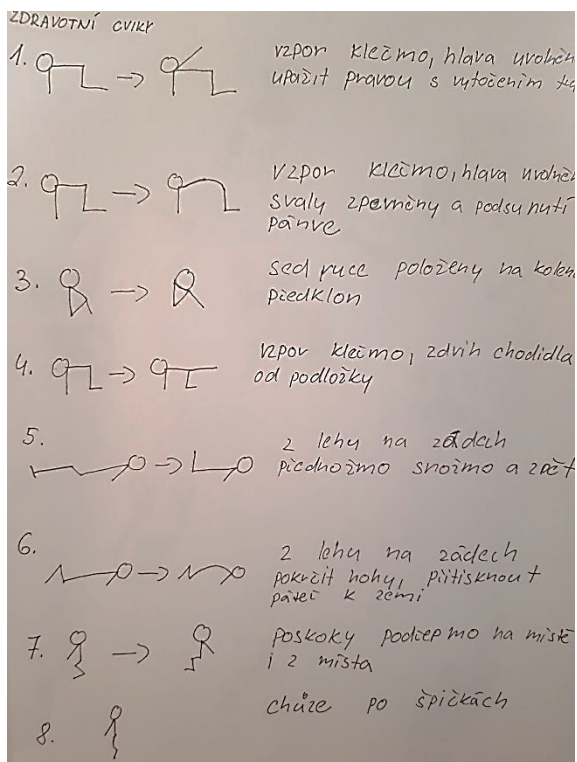 ZDRAVOTNÍ CVIKY
1. vzpor klečmo, hlava uvolněn
upažit pravou s vytočením
2. vzpor klečmo, hlava uvolněn
svaly zpevněny a podsunutí
pánve
3. sed ruce položeny na kolen
předklon
4. vzpor klečmo, zdvih chodidla
od podložky
5. z lehu na zádech
přednožmo snožmo a zpět
6. z lehu na zádech
pokrčit nohy, přitisknout
páteř k zemi
7. poskoky podřepmo na místě
i z místa
8. chůze po špičkách